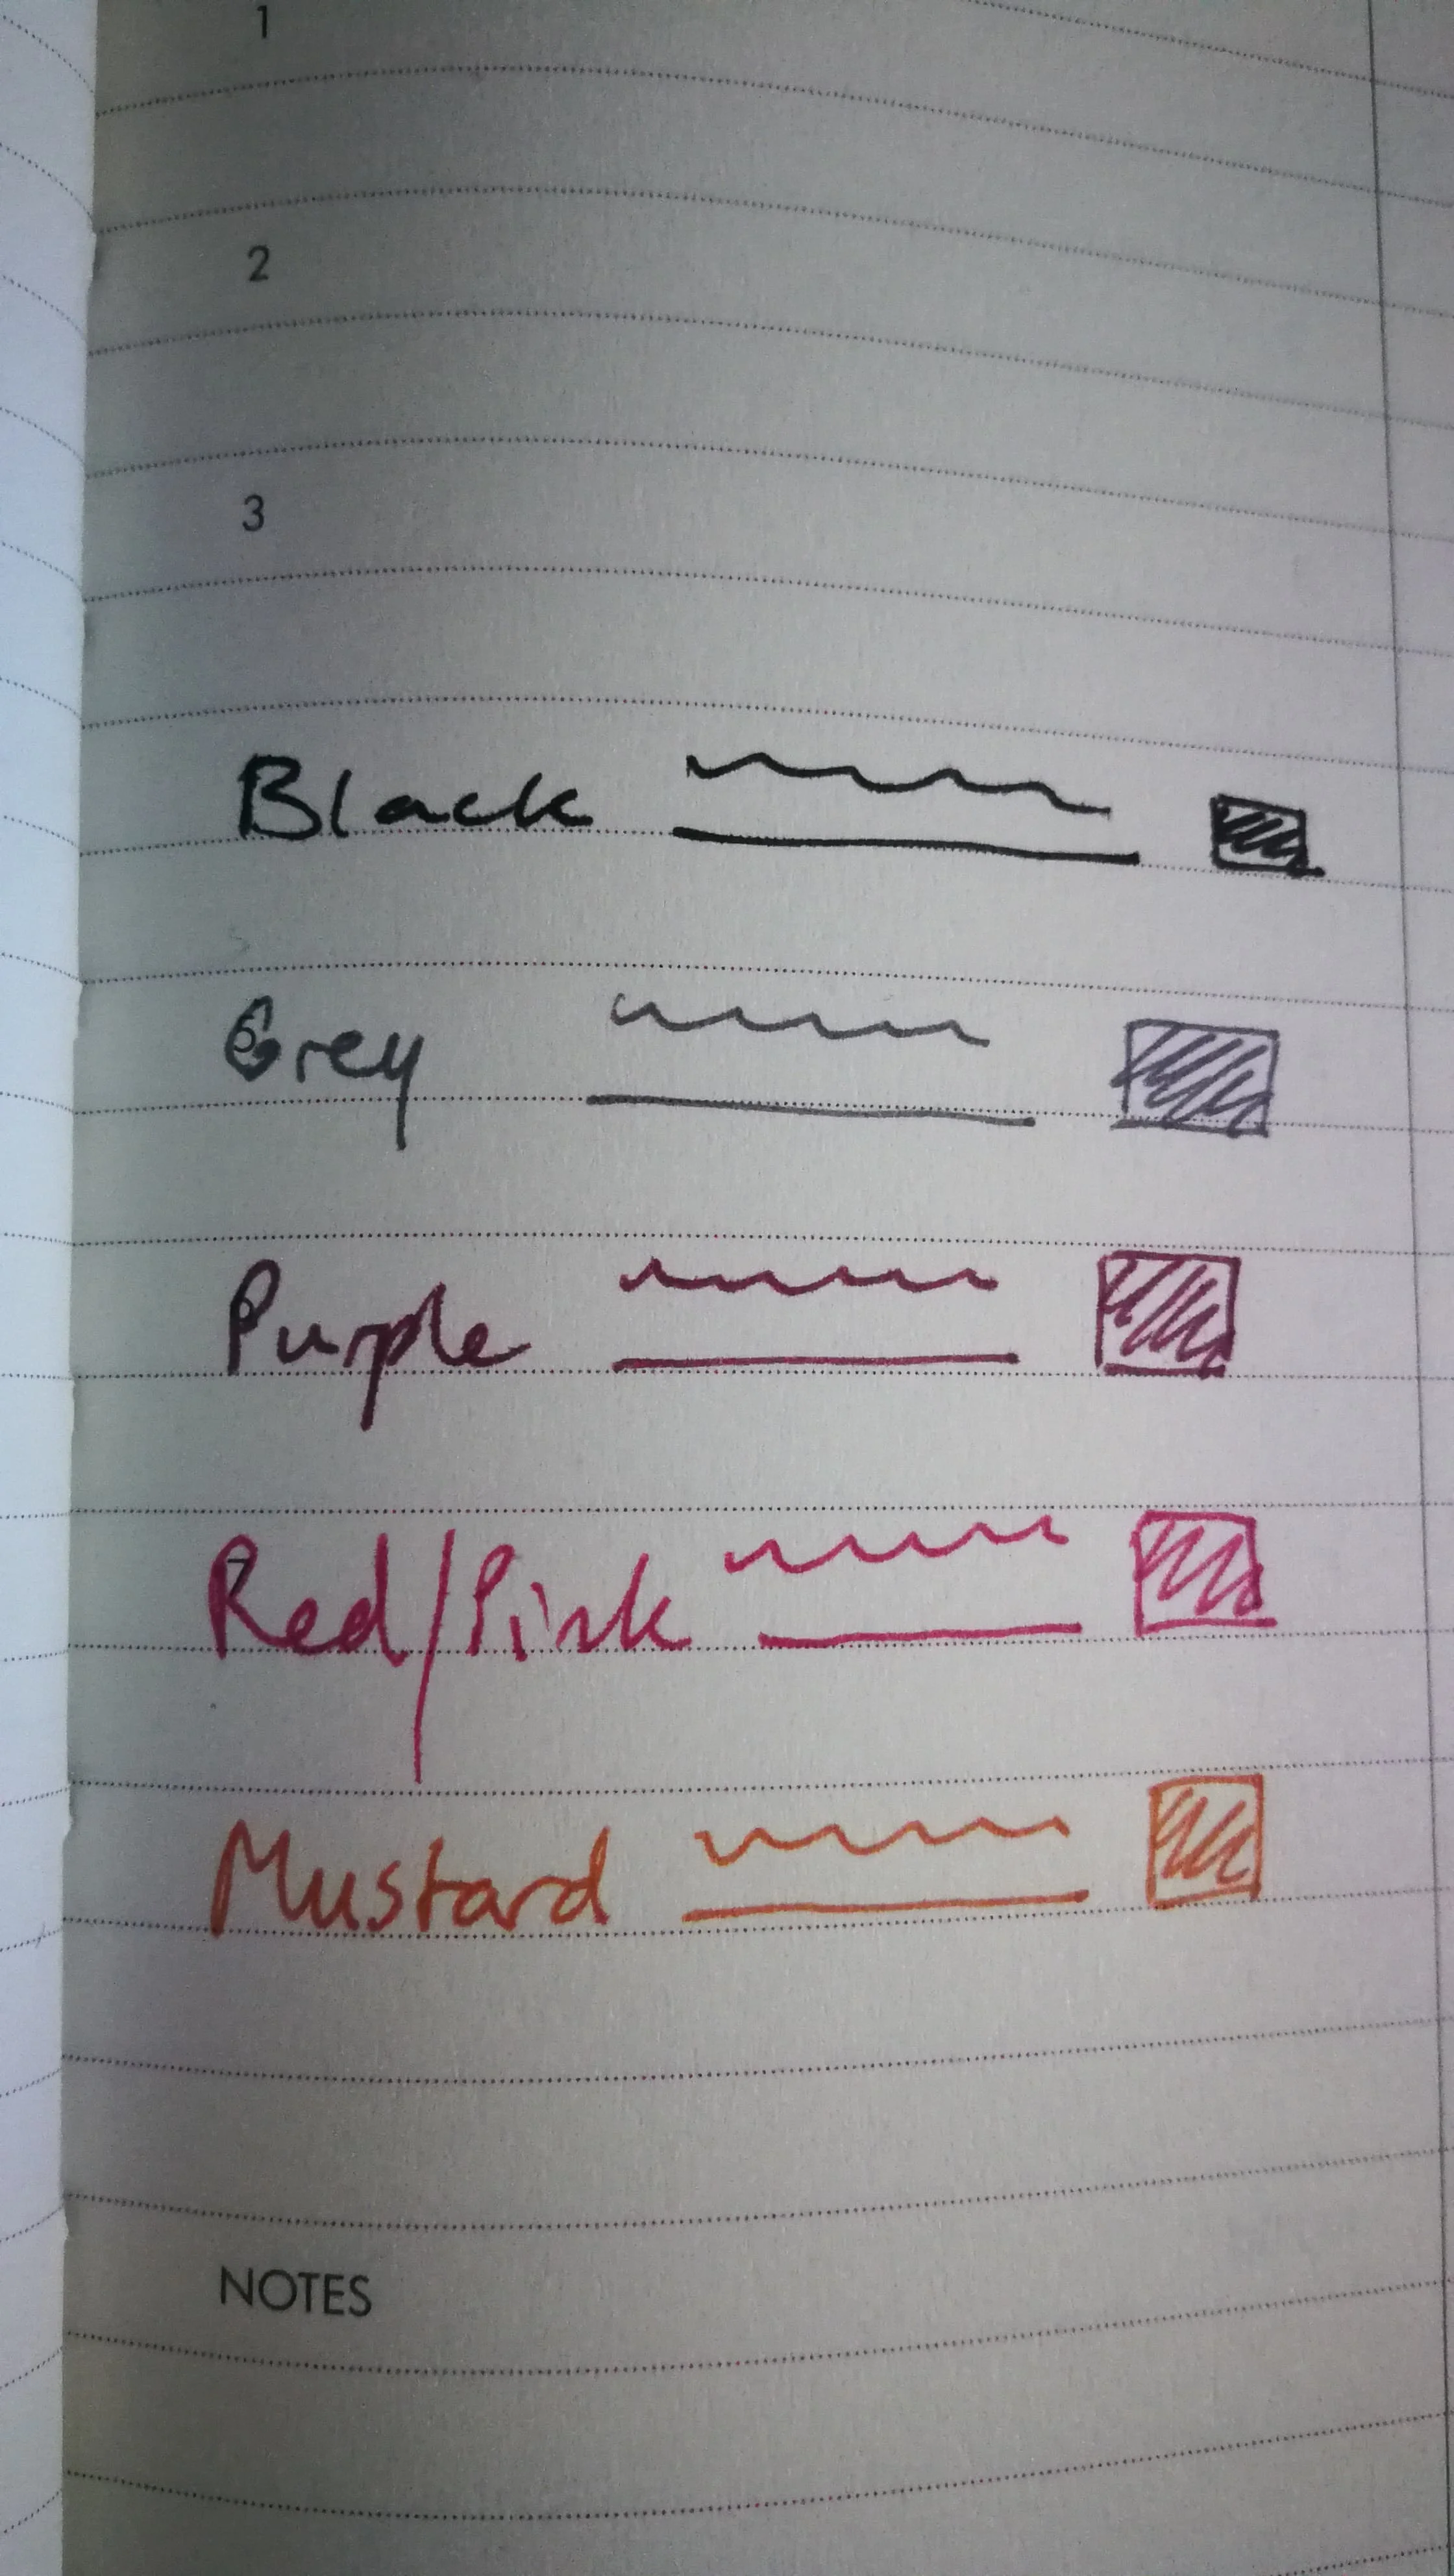 1
2
3
Black
Grey
Purple
Red/Pink
Mustard
NOTES